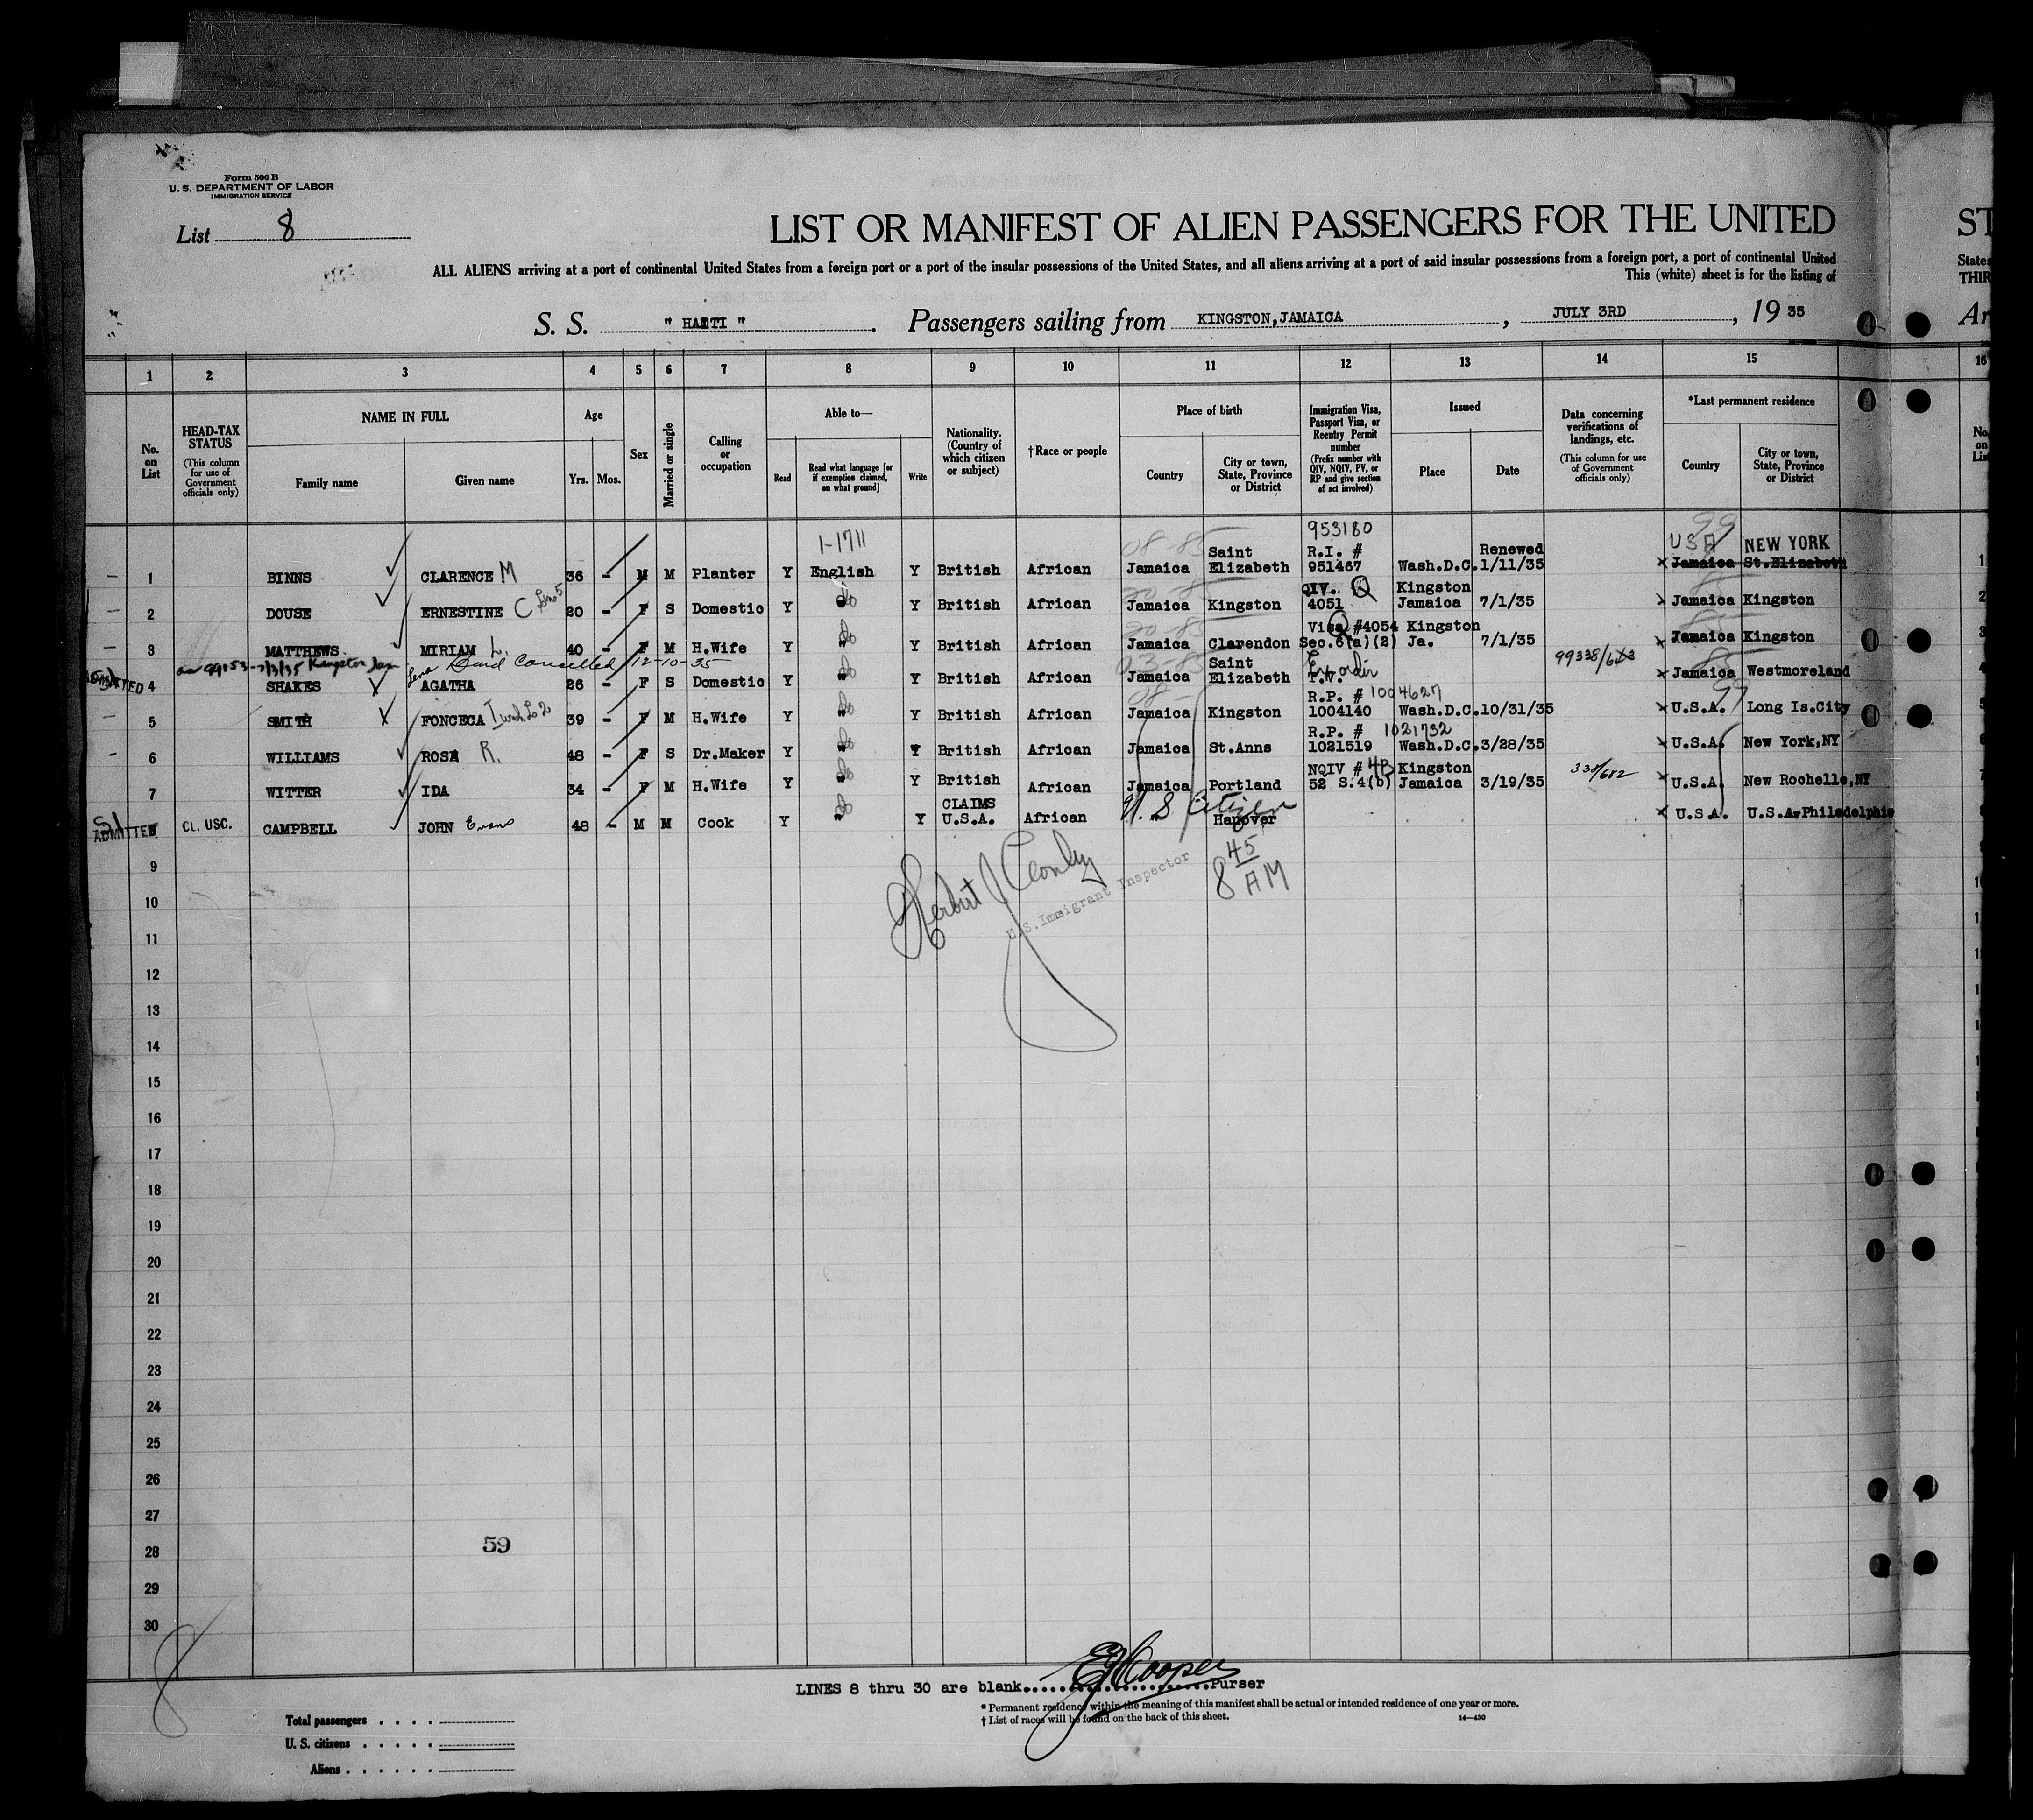 Form 500 B
U. S. DEPARTMENT OF LABOR
IMMIGRATION SERVICE
List 8
LIST OR MANIFEST OF ALIEN PASSENGERS FOR THE UNITED
ST
ALL ALIENS arriving at a port of continental United States from a foreign port or a port of the insular possessions of the United States, and all aliens arriving at a port of said insular possessions from a foreign port, a port of continental United
States
This (white) sheet is for the listing of
THIR
S. S. " HAITI " . Passengers sailing from KINGSTON,JAMAICA , JULY 3RD , 19 35
Ar
1 2 3 4 5 6 7 8 9 10 11 12 13 14 15 16
No. on List
HEAD-TAX STATUS (This column for use of Government officials only)
NAME IN FULL
Family name Given name
Age
Yrs. Mos.
Sex
Married or single
Calling or occupation
Able to—
Read Read what language [or if exemption claimed, on what ground] Write
Nationality. (Country of which citizen or subject)
†Race or people
Place of birth
Country City or town, State, Province or District
Immigration Visa, Passport Visa, or Reentry Permit number (Prefix number with QIV, NQIV, PV, or RP and give section of act involved)
Issued
Place Date
Data concerning verifications of landings, etc. (This column for use of Government officials only)
*Last permanent residence
Country City or town, State, Province or District
No. on List
1-1711 953180
08-85 Saint R.I. # Renewed USA 99 NEW YORK
1 BINNS CLARENCE M 36 - M M Planter Y English Y British African Jamaica Elizabeth 951467 Wash.D.C. 1/11/35 Jamaica St.Elizabeth
QIV. Q Kingston
2 DOUSE ERNESTINE C 20 - F S Domestic Y " Y British African Jamaica Kingston 4051 Jamaica 7/1/35 Jamaica Kingston
Visa #4054 Kingston
3 MATTHEWS MIRIAM L. 40 - F M H.Wife Y " Y British African Jamaica Clarendon Sec.6(a)(2) Ja. 7/1/35 Jamaica Kingston
99153-7/3/35 Kingston Jam Bond Cancelled 12-10-35 03-85 Saint
ADMITTED 4 SHAKES AGATHA 26 - F S Domestic Y " Y British African Jamaica Elizabeth P.V. Jamaica Westmoreland
R.P. # 1004627
5 SMITH FONCECA 39 - F M H.Wife Y " Y British African Jamaica Kingston 1004140 Wash.D.C. 10/31/35 U.S.A. Long Is.City
R.P. # 1021732
6 WILLIAMS ROSA R. 48 - F S Dr.Maker Y " Y British African Jamaica St.Anns 1021519 Wash.D.C. 3/28/35 U.S.A. New York,NY
NQIV # 4B Kingston
7 WITTER IDA 34 - F M H.Wife Y " Y British African Jamaica Portland 52 S.4(b) Jamaica 3/19/35 338/682 U.S.A. New Rochelle,NY
CLAIMS U. S. Citizen
ADMITTED 8 Cl. USC. CAMPBELL JOHN Evans 48 - M M Cook Y " Y U.S.A. African Hanover U.S.A. U.S.A,Philadelphia
9
45
8 AM
Herbert J
U.S. Immigrant Inspector
10
11
12
13
14
15
16
17
18
19
20
21
22
23
24
25
26
27
59
28
29
30
8
EJ Cooper
LINES 8 thru 30 are blank......................Purser
* Permanent residence within the meaning of this manifest shall be actual or intended residence of one year or more.
† List of races will be found on the back of this sheet.
14—430
Total passengers . . . .
U. S. citizens . . . . .
Aliens . . . . . .